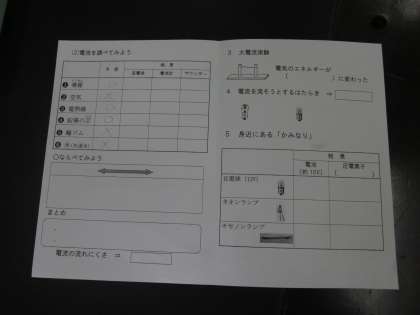 (2)電流を調べてみよう
予想
結果
豆電球
電流計
ブザー
❶
❷ 空気
❸ 電熱線
❹ 鉛筆の芯
❺ 輪ゴム
❻ 水(水道水)
○ならべてみよう
まとめ
電流の流れにくさ ⇒
3 大電流実験
電気のエネルギーが
( )に変わった
4 電流を流そうとするはたらき ⇒
5 身近にある「かみなり」
結果
電流
(約10V)
圧電素子
( )
豆電球(12V)
ネオンランプ
キセノンランプ